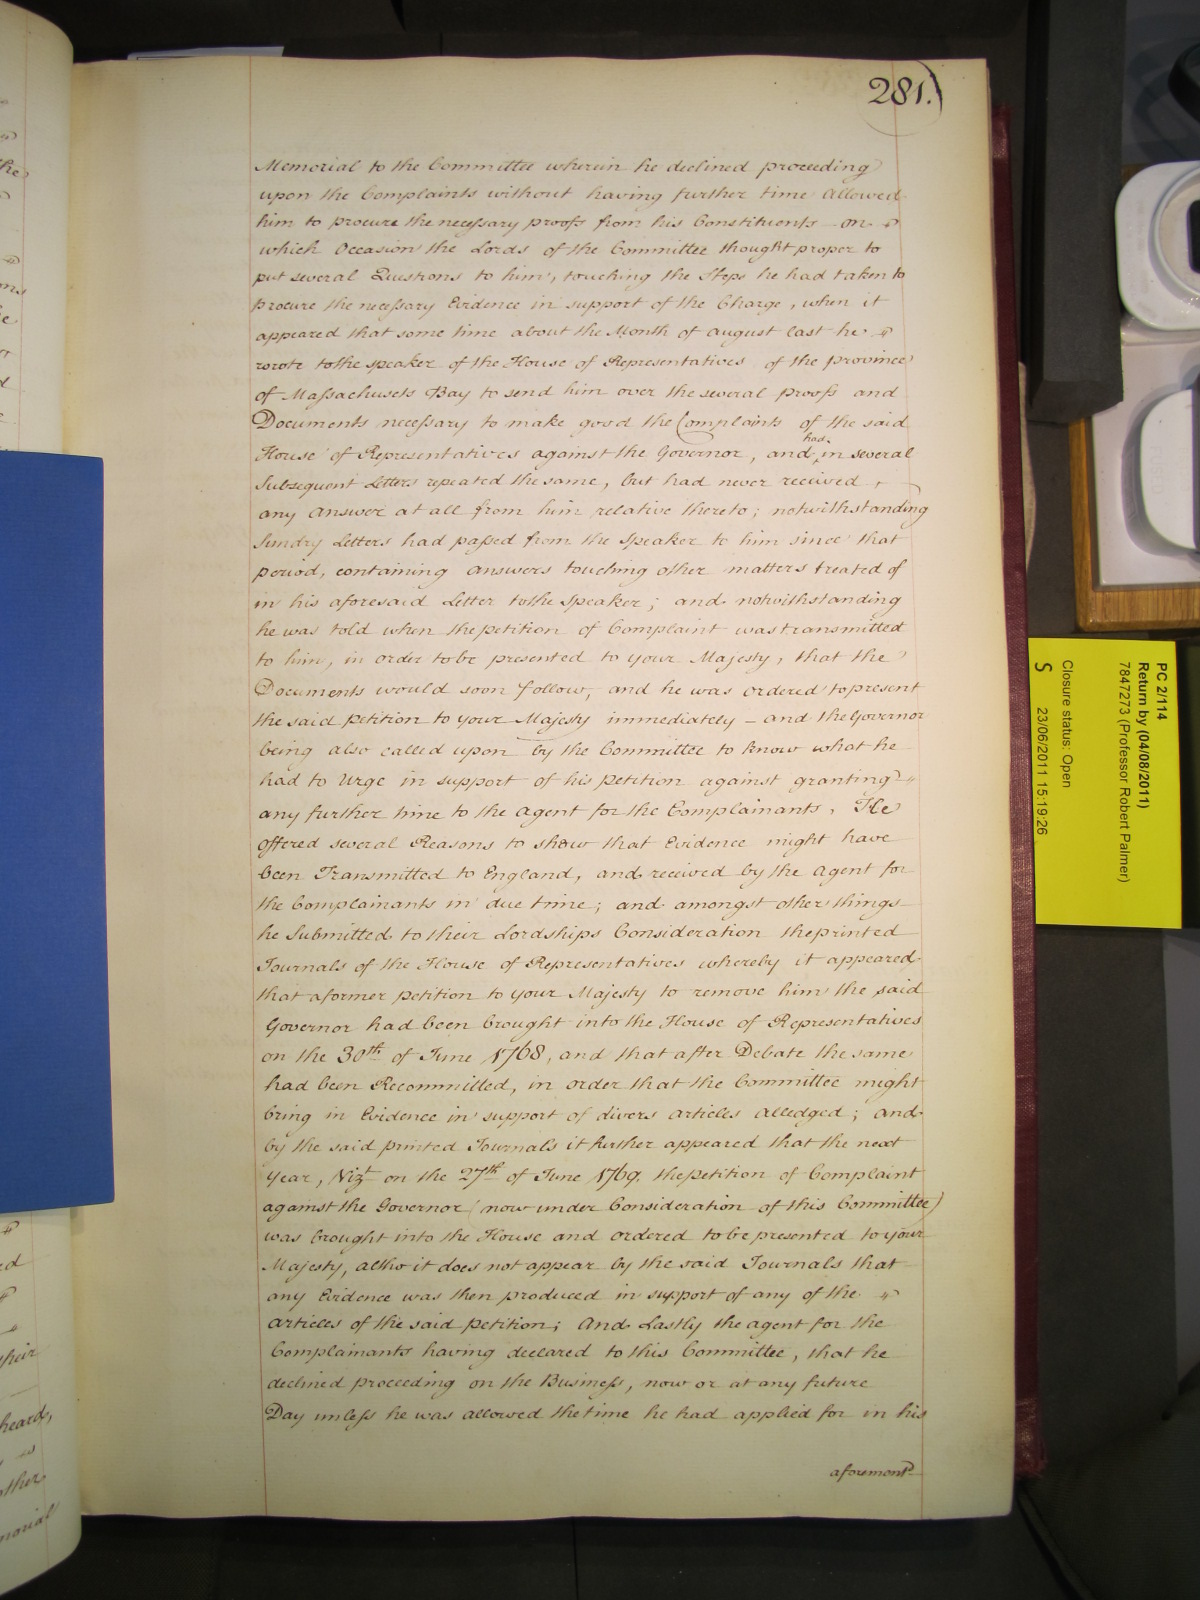 281.
Memorial to the Committee wherein he declined proceeding
upon the Complaints without having further time allowed
him to procure the necessary proofs from his Constituents on
which Occasion the Lords of the Committee thought proper to
put several Questions to him, touching the Steps he had taken to
procure the necessary Evidence in support of the Charge, when it
appeared that some time about the Month of August last he
wrote to the Speaker of the House of Representatives of the province
of Massachusets Bay to send him over the several proofs and
Documents necessary to make good the Complaints of the said
had
House of Representatives against the Governor, and in several
Subsequent Letters repeated the same, but had never received
any answer at all from him relative thereto; notwithstanding
Sundry Letters had passed from the Speaker to him since that
period, containing answers touching other matters treated of
in his aforesaid Letter to the Speaker; and notwithstanding
he was told when the petition of Complaint was transmitted
to him, in order to be presented to your Majesty, that the
Documents would soon follow, and he was ordered to present
the said petition to your Majesty immediately – and the Governor
being also called upon by the Committee to know what he
had to Urge in support of his petition against granting
any further time to the Agent for the Complainants, He
offered several Reasons to show that Evidence might have
been Transmitted to England, and received by the Agent for
the Complainants in due time; and amongst other things
he Submitted to their Lordships Consideration the printed
Journals of the House of Representatives whereby it appeared
that a former petition to your Majesty to remove him the said
Governor had been brought into the House of Representatives
on the 30th of June 1768, and that after Debate the same
had been Recommitted, in order that the Committee might
bring in Evidence in support of divers articles alledged; and
by the said printed Journals it further appeared that the next
year, Vizt on the 27th of June 1769, the petition of Complaint
against the Governor (now under Consideration of this Committee)
was brought into the House and ordered to be presented to your
Majesty, altho it does not appear by the said Journals that
any Evidence was then produced in support of any of the
articles of the said petition; And Lastly the agent for the
Complainants having declared to this Committee, that he
declined proceeding on the Business, now or at any future
Day unless he was allowed the time he had applied for in his
aforementd
PC 2/114
Return by (04/08/2011)
7847273 (Professor Robert Palmer)
Closure status: Open
S 23/06/2011 15:19:26